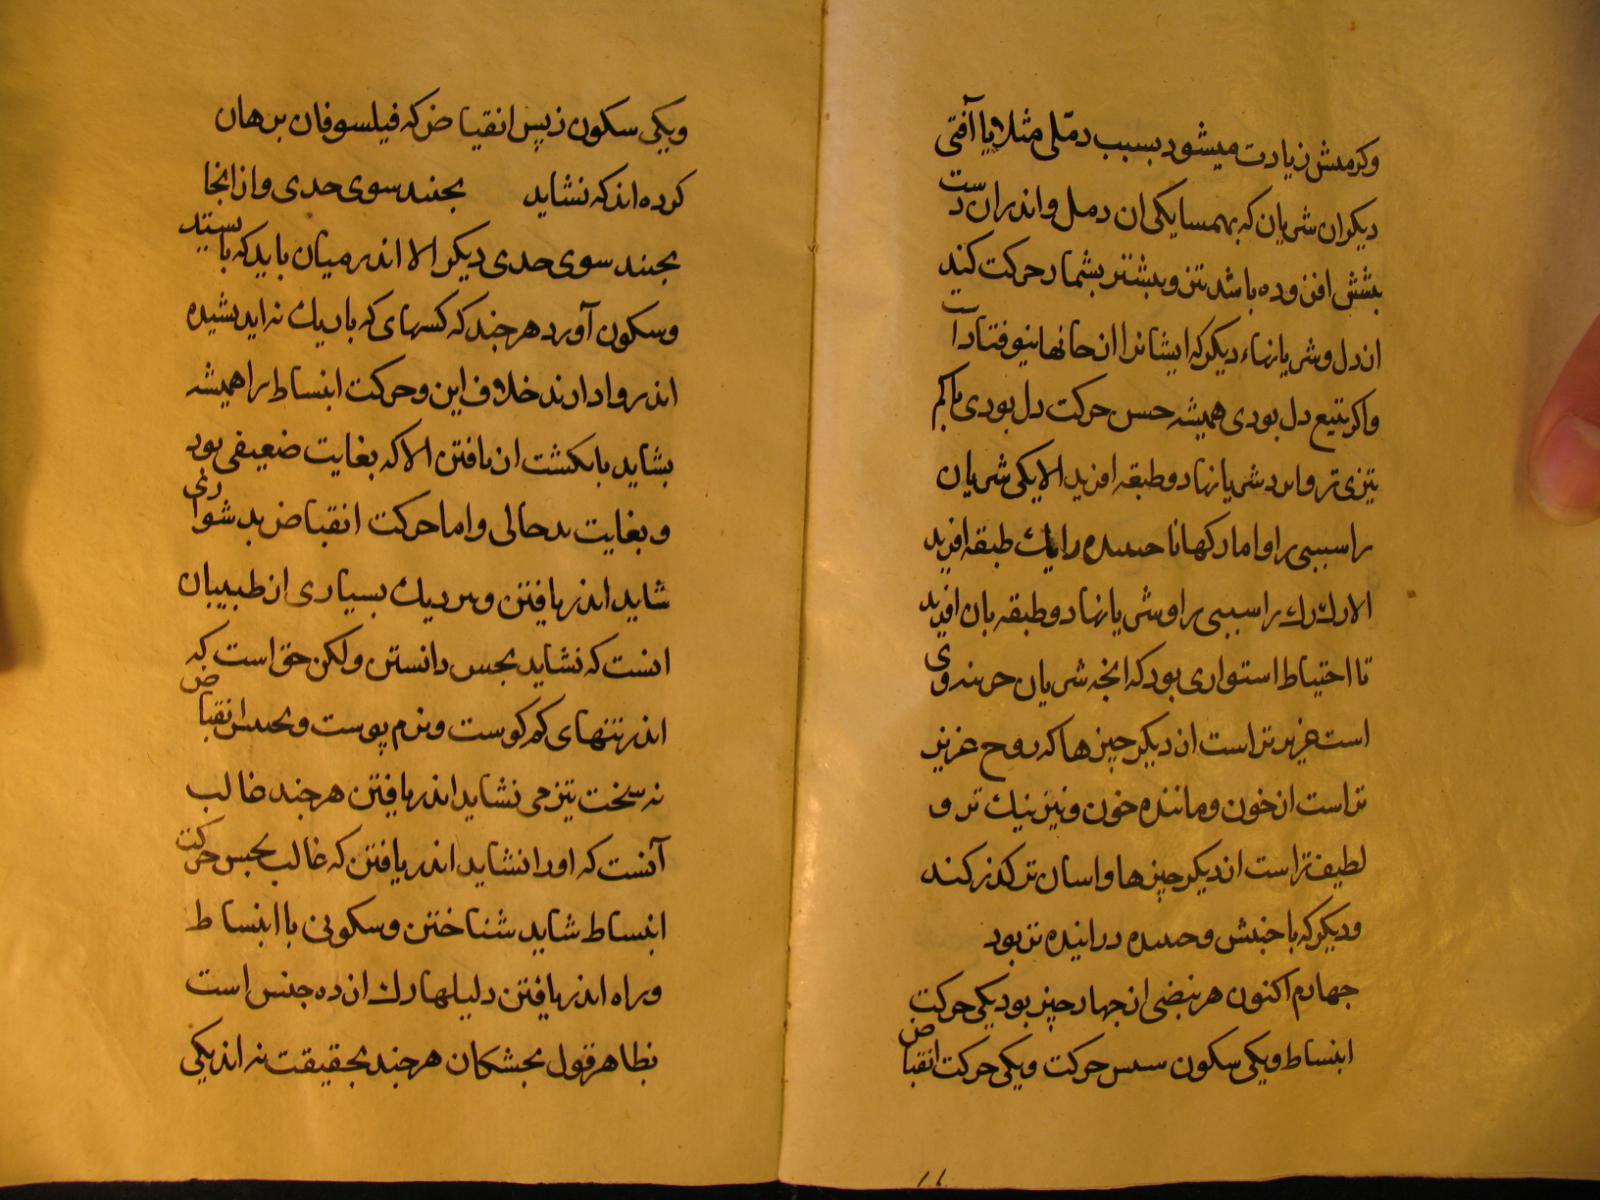 وکرمیش زیادت میشود بسبب دملی مثلا یا آفتی
دیکر ان شریان که بهمسایکی ان دمل و اندر ان دست
بیشش افزوده باشد تیز و بیشتر بشمار حرکت کند
از دل و شریانهاء دیکر که ایشانرا ان حانها نیوفتادست
واکر بتبع دل بودی همیشه حسن حرکت دل بودی یا کم
تیزی تر وایزد شریانها دو طبقه افرید الا یکی شریان
را سببی را و اما رکهاء نا جنبنده را یک طبقه افرید
الا رک رک را سببی را و شریانها دو طبقه بان افرید
تا احتیاط استواری بود که انجه شریان خزینه وی
است عزیزتر است از دیکر جیزها که روح عزیز
تر است از خون و ماننده خون و نیز نیک تر و
لطیف تر است از دیکر جیزها و اسان تر کذر کند
و دیکر که با جنبش و جنبنده دراینده تر بود
جهارم اکنون هر نبضی از جهار جیز بود یکی حرکت
انبساط و یکی سکون سپس حرکت و یکی حرکت انقباض
ویکی سکون زپس انقباض که فیلسوفان برهان
کرده اند که نشاید بجنبند سوی حدی و از انجا
بجنبند سوی حدی دیکر الا اندر میان باید که باستید
وسکون آورد هر جند که کسهای که باریک نه اندیشیده
اند روا دارند خلاف این و حرکت انبساط را همیشه
بشاید بانکشت اندیافتن الا که بغایت ضعیفی بود
و بغایت بدحالی و اما حرکت انقباض بدشواری
شاید اندریافتن و نزدیک بسیاری از طبیبان
انست که نشاید بحس دانستن ولکن حق است که
اندر تنهای کم کوشت و نرم پوست و بجنبش انقباض
نه سخت تیز می نشاید اندریافتن هر جند غالب
آنست که اورا نشاید اندر یافتن که غالب بحس حرکت
انبساط شاید شناختن و سکونی با انبساط
وراه اندریافتن دلیلهاء رک از ده جنس است
بظاهر قول بجشکان هر جند بحقیقت نه اند یکی